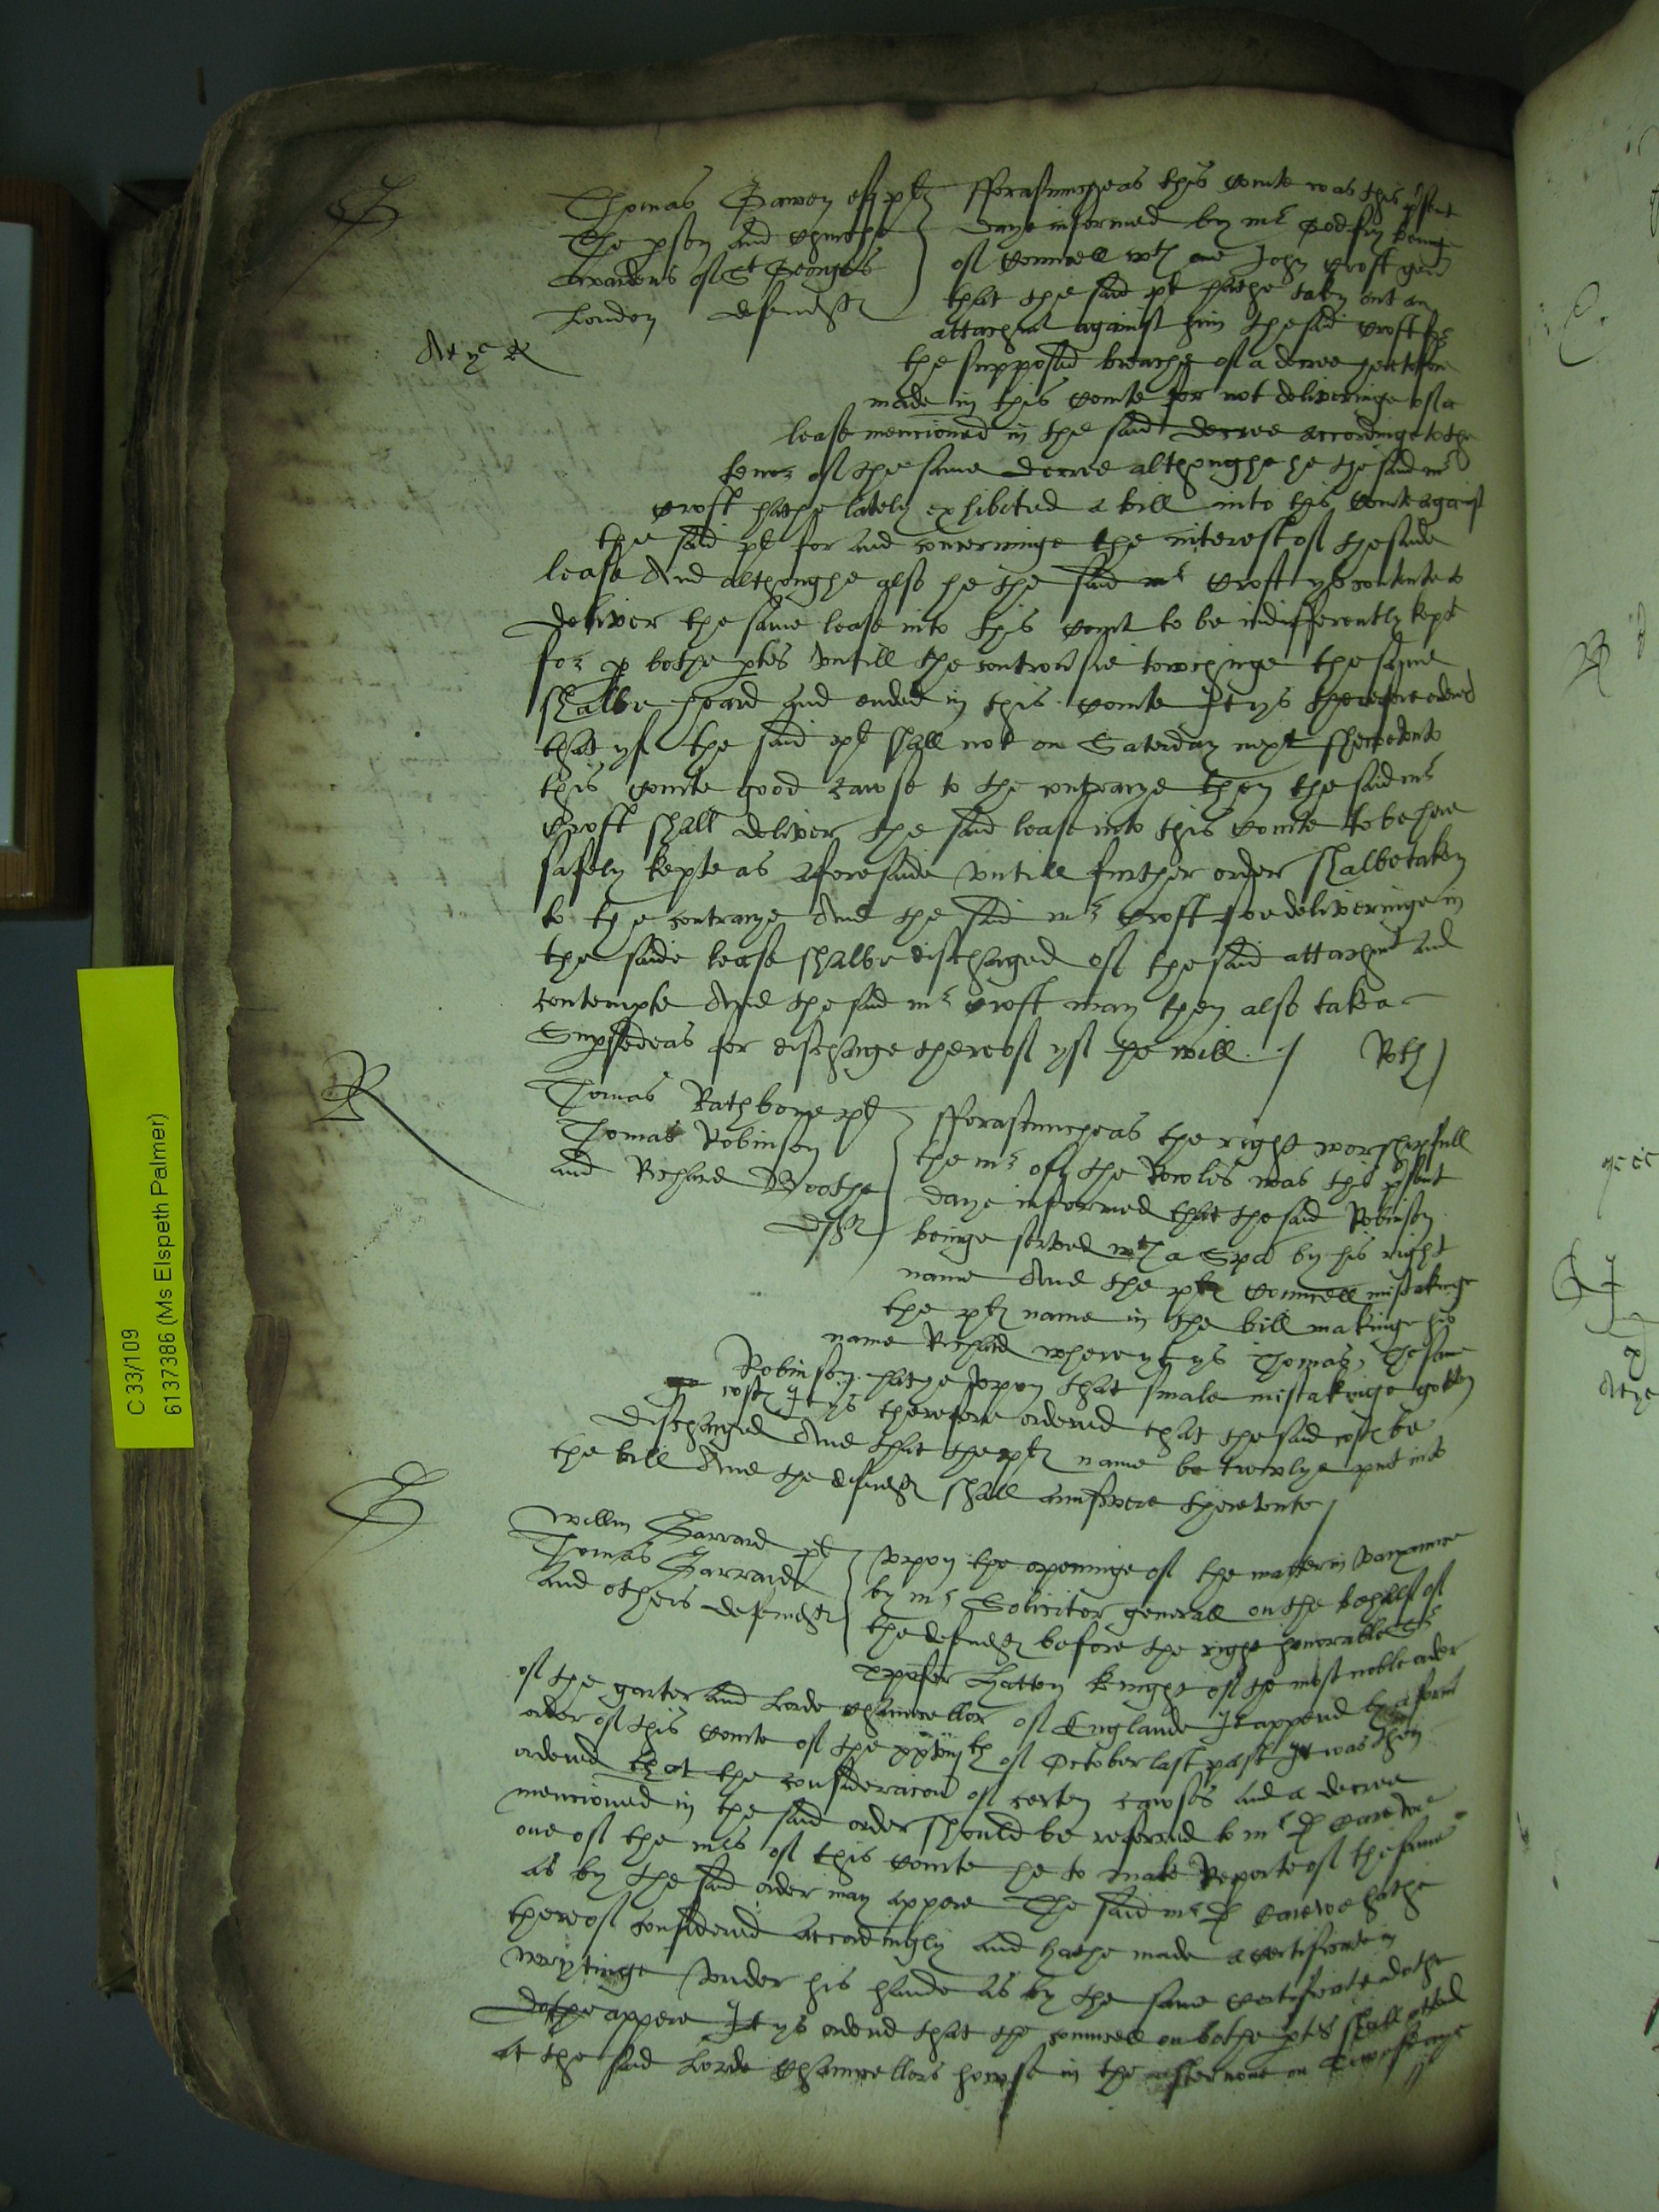 Thomas Gawen esq pl
The pson and Churche
wardens of St Georges
London defendtes
G
Forasmucheas this Courte was this psent
daye informed by mr Godfrey beinge
of Councell wth one John Croft gent
that the said pl hathe taken out an
attachmt against him the said Croft for
the supposed breache of a decree heretofore
made in this Courte for not deliveringe of a
lease mencioned in the said decree accordinge to the
tenor of the same decree althoughe he the said mr
Croft hathe lately exhibited a bill into this Courte against
the said pl for and concerninge the interest of the saide
lease And althoughe also he the said mr Croft ys contente to
deliver the same lease into this Court to be indifferently kept
for bothe ptes untill the controvsie towchinge the same
shalbe heard and ended in this Courte It ys therefore ordered
that yf the said pl shall not on Saterday next shewe unto
this Courte good cawse to the contrarye then the said mr
Croft shall deliver the said lease into this Courte to be here
safely kepte as aforesaide untill further order shalbe taken
to the contrarye And the said mr Croft for deliveringe in
the saide lease shalbe discharged of the said attachmt and
contempte And the said mr Croft may then also take a
Supsedeas for discharge thereof yf he will
R
Thomas Rathbone pl
Thomas Robinson
and Richard Boothe
dftes
Forasmucheas the right worshipfull
the mr of the Rowles was this psent
daye informed that the said Robinson
beinge served wth a Spa by his right
name And the ptes Councell mistakinge
the ptes name in the bill makinge his
name Richard where yt ys Thomas, The same
Robinson hathe upon that smale mistakinge gotten
costes It ys therefore ordered that the said costes be
discharged And that the ptes name be trewlye put into
the bill And the defendtes shall aunswere thereunto
G
Willm Garrard pl
Thomas Garrard
and others defendtes
Upon the openinge of the matter in variaunce
by mr Solicitor generall on the behalf of
the defendtes before the right honorable Sr
Xpofer Hatton knight of the most noble order
of the garter and Lorde Chauncellor of Englande It appered by a former
order of this Courte of the xxviijth of October last past It was then
ordered that the consideracion of certen cawses and a decree
mencioned in the said order should be referred to mr D Carewe
one of the mrs of this Courte he to make Reporte of the same
as by the said order may appere The said mr D Carewe hathe
thereof considered accordingly and hathe made a certificate in
wrytinge under his hande as by the same certificate dothe
dothe appere It ys ordered that the councell on bothe ptes shall attend
at the said Lorde Chauncellors howse in the afternone on
C 33/109
6137386 (Ms Elspeth Palmer)